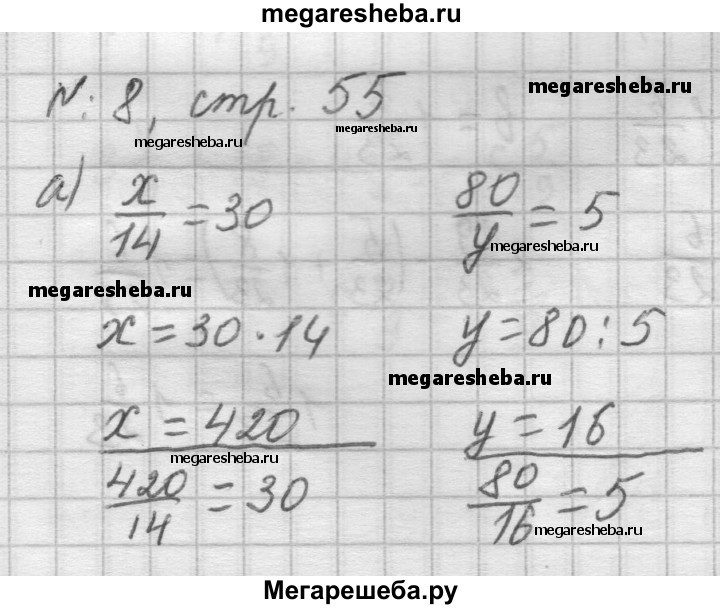 megaresheba.ru
N: 8, стр. 55
megaresheba.ru
megaresheba.ru
megaresheba.ru
а) x/14 = 30 80/y = 5
megaresheba.ru
megaresheba.ru
x = 30 · 14 y = 80 : 5
megaresheba.ru
x = 420 y = 16
megaresheba.ru
420/14 = 30 80/16 = 5
megaresheba.ru
Мегарешеба.ру